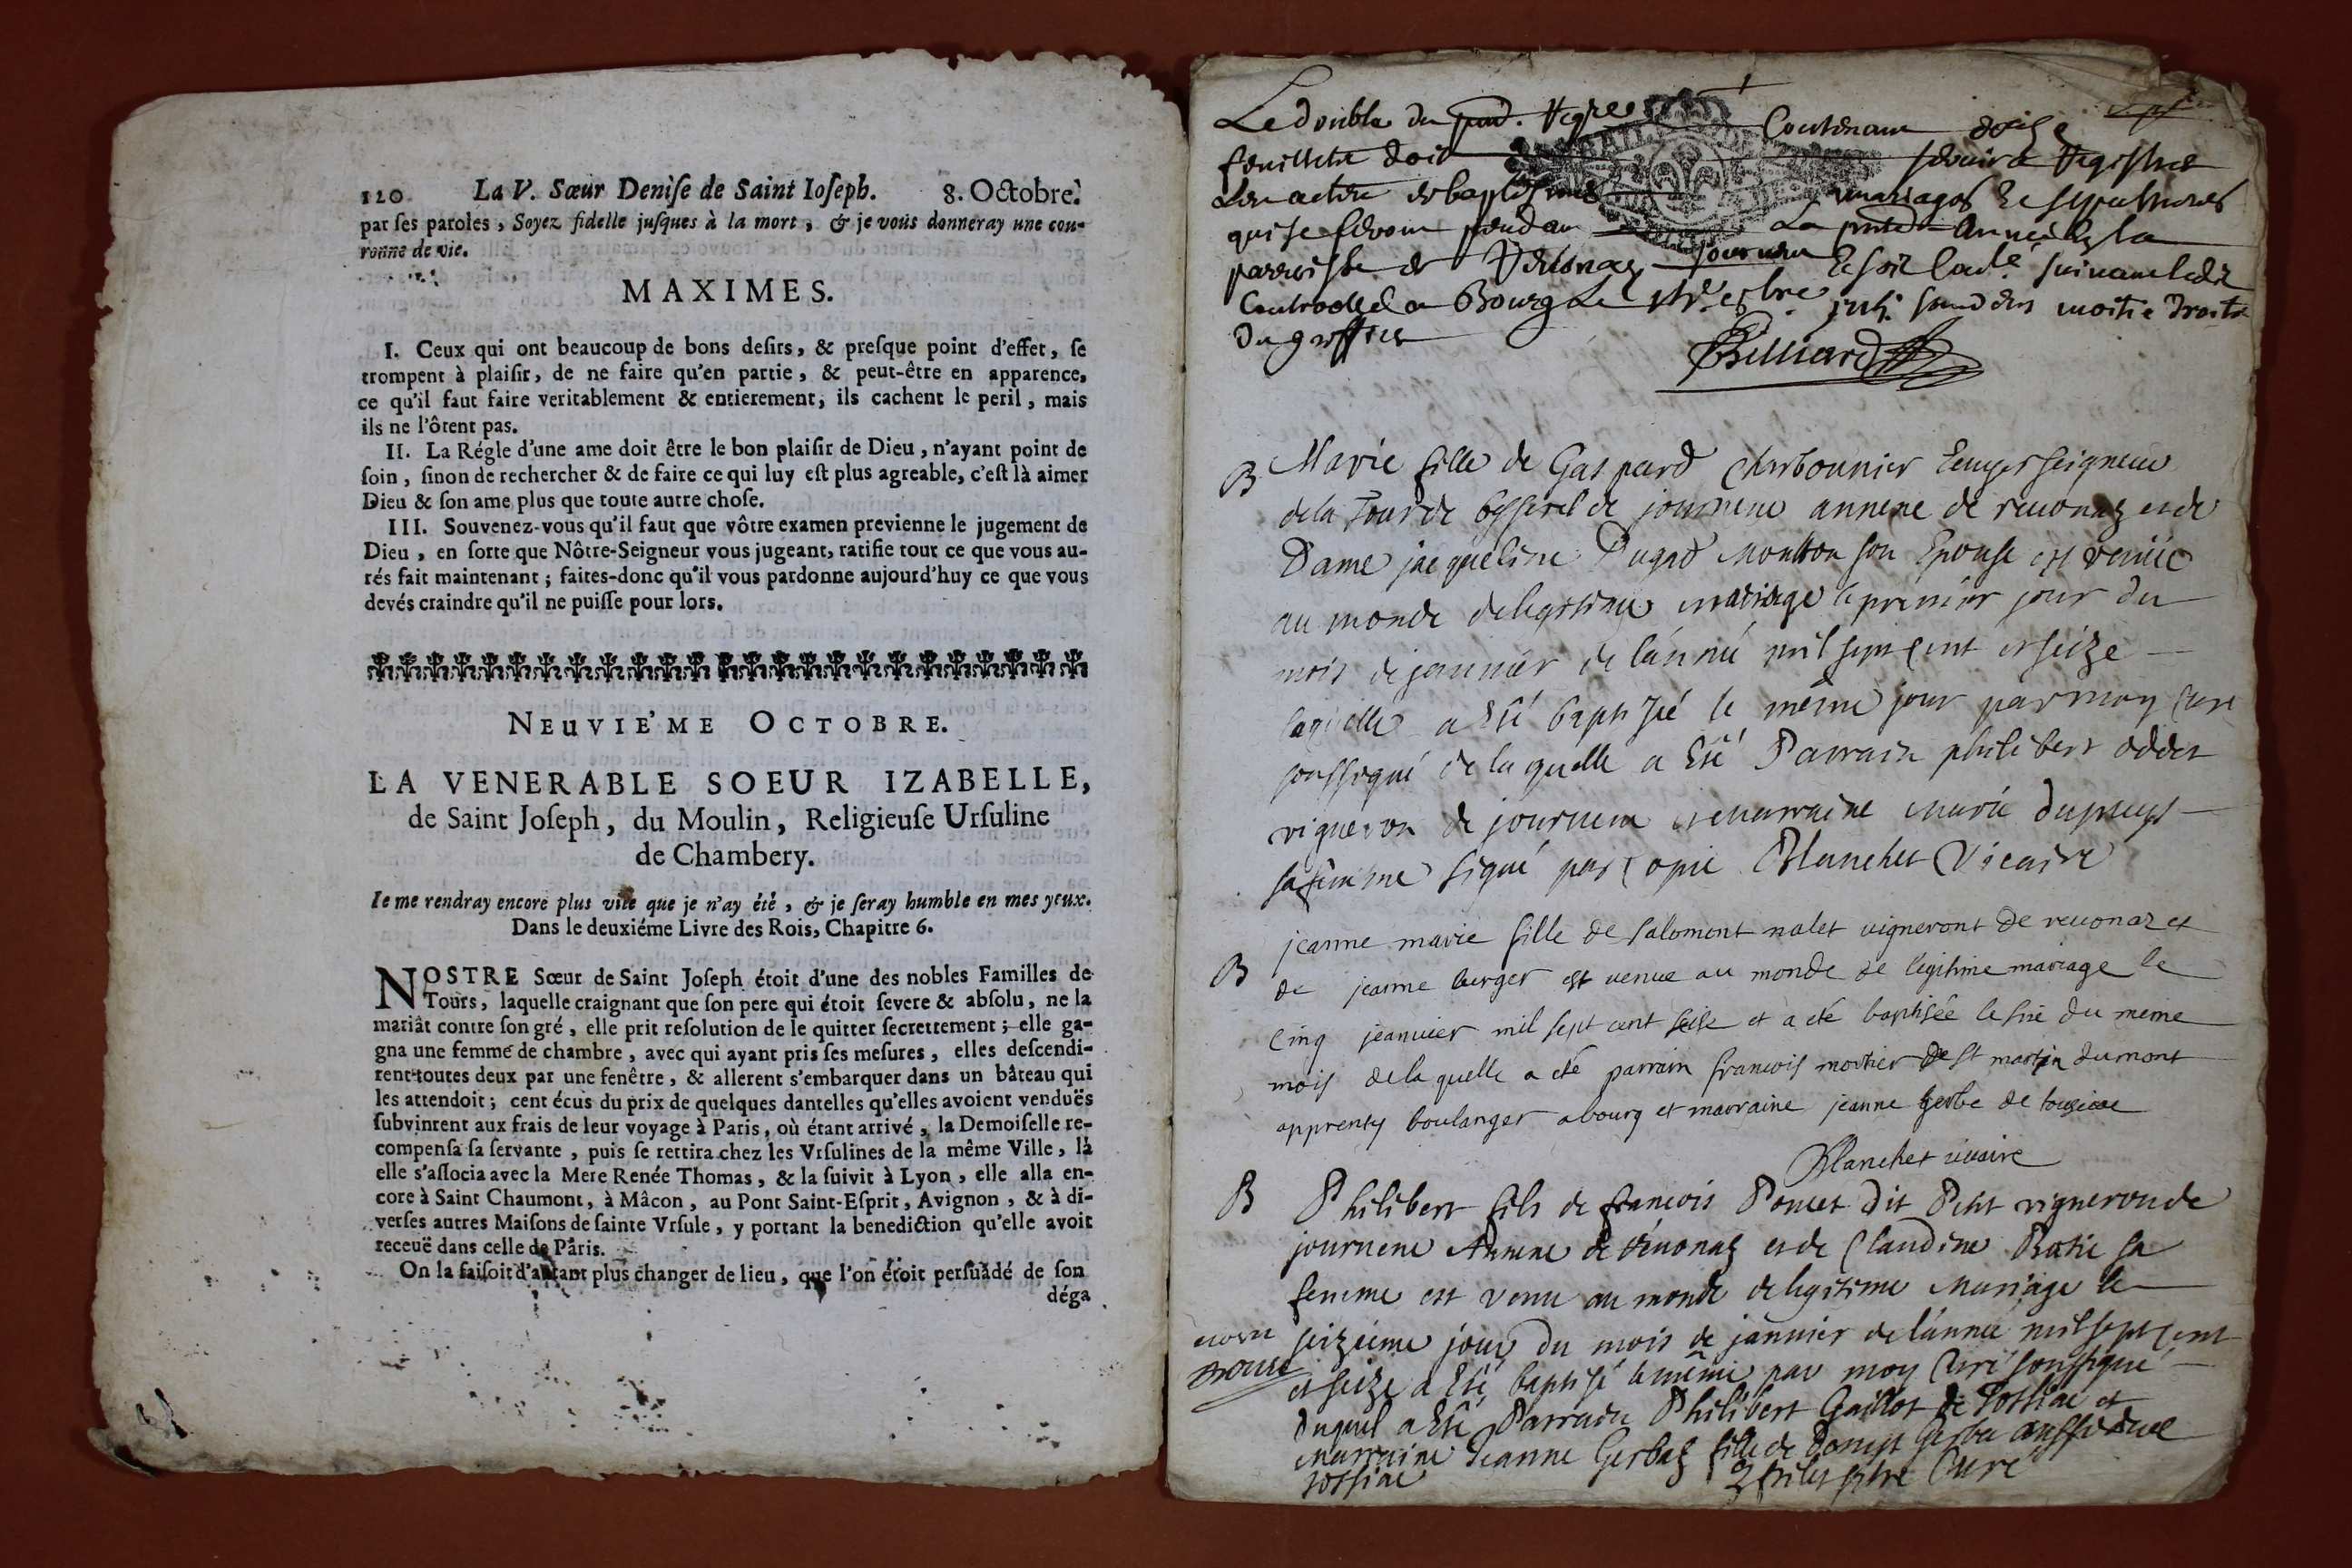 120 La V. Sœur Deniſe de Saint Ioſeph. 8. Octobre.
par ſes paroles, Soyez fidelle juſques à la mort, & je vous donneray une cou-
ronne de vie.
MAXIMES.
I. Ceux qui ont beaucoup de bons deſirs, & preſque point d'effet, ſe
trompent à plaiſir, de ne faire qu'en partie, & peut-être en apparence,
ce qu'il faut faire veritablement & entierement, ils cachent le peril, mais
ils ne l'ôtent pas.
II. La Régle d'une ame doit être le bon plaiſir de Dieu, n'ayant point de
ſoin, ſinon de rechercher & de faire ce qui luy eſt plus agreable, c'eſt là aimer
Dieu & ſon ame plus que toute autre choſe.
III. Souvenez-vous qu'il faut que vôtre examen previenne le jugement de
Dieu, en ſorte que Nôtre-Seigneur vous jugeant, ratifie tout ce que vous au-
rés fait maintenant; faites-donc qu'il vous pardonne aujourd'huy ce que vous
devés craindre qu'il ne puiſſe pour lors.
NEUVIE'ME OCTOBRE.
LA VENERABLE SOEUR IZABELLE,
de Saint Joſeph, du Moulin, Religieuſe Urſuline
de Chambery.
Ie me rendray encore plus vile que je n'ay été, & je ſeray humble en mes yeux.
Dans le deuxiéme Livre des Rois, Chapitre 6.
NOSTRE Sœur de Saint Joſeph étoit d'une des nobles Familles de
Tours, laquelle craignant que ſon pere qui étoit ſevere & abſolu, ne la
mariât contre ſon gré, elle prit reſolution de le quitter ſecrettement; elle ga-
gna une femme de chambre, avec qui ayant pris ſes meſures, elles deſcendi-
rent toutes deux par une fenêtre, & allerent s'embarquer dans un bâteau qui
les attendoit; cent écus du prix de quelques dantelles qu'elles avoient venduës
ſubvinrent aux frais de leur voyage à Paris, où étant arrivé, la Demoiſelle re-
compenſa ſa ſervante, puis ſe rettira chez les Vrſulines de la même Ville, là
elle s'aſſocia avec la Mere Renée Thomas, & la ſuivit à Lyon, elle alla en-
core à Saint Chaumont, à Mâcon, au Pont Saint-Eſprit, Avignon, & à di-
verſes autres Maiſons de ſainte Vrſule, y portant la benediction qu'elle avoit
receuë dans celle de Paris.
On la faiſoit d'autant plus changer de lieu, que l'on étoit perſuadé de ſon
déga
Le double du Contenant
feuillets doit servir a Registre
Les actes de baptesmes mariages et sepultures
qui se feront pendant La année
parroisse de journen Et soit suivant
Controollé a Bourg Le moitié droits
Du greffier
Billiard
B Marie fille de Gaspard Charbonnier seigneur
de la Tour de de journene annexe de reuonaz et de
Dame jacqueline Dugad son Epouse est venüe
au monde de legitime mariage le premier jour du
mois de januier de l'anné mil sept cent et seize
laquelle a Eté baptisée le même jour par moy Curé
soussigné de laquelle a Eté Parrain philibert oddet
vigneron de journene et marraine marie dupuys
sa femme signé par copie Blanchet Vicaire
B jeanne marie fille de salomont nalet vigneront de reuonaz et
de jeanne burger est venue au monde de legitime mariage le
cinq jeanuier mil sept cent seise et a eté baptisée le sixe du meme
mois de la quelle a eté parrain francois mortier de st martin dumont
apprenty boulanger a bourg et marraine jeanne gerbe de
Blanchet vicaire
B Philibert fils de francois Poncet dit Petit vigneron de
journene Annexe de réuonaz et de Claudine Ratie sa
femme est venu au monde de legitime Mariage le
seizieme jour du mois de januier de l'année mil sept cent
et seize a Eté baptisé le même par moy Curé soussigné
Duquel a Eté Parrain Philibert Gaillot de Tossiac et
marraine Jeanne Gerbaz fille de Gerba aussi du
Tossiac Curé